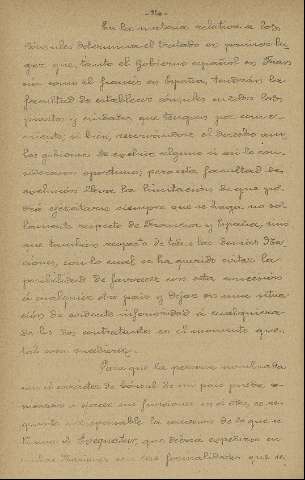 En la materia relativa a los
Cónsules determina el tratado en primer lu-
gar que tanto el Gobierno español en Fran-
cia como el francés en España, tendrán la
facultad de establecer cónsules en todos los
puertos y ciudades que tengan por conve-
niente, si bien, reservándose el derecho am-
bos gobiernos de excluir alguno si así lo con-
siderasen oportuno; pero esta facultad de
exclusión lleva la limitación de que po-
drá ejercitarse siempre que se haga, no so-
lamente respecto de Francia y España, sino
que también respecto de todas las demás Na-
ciones, con lo cual se ha querido evitar la
posibilidad de favorecer con esta concesión
á cualquier otro país y dejar en una situa-
ción de inferioridad á cualquiera
de los dos contratantes en el momento que
tal cosa sucediese.
Para que la persona nombrada
con el carácter de Cónsul de un país pueda co-
menzar a ejercer sus funciones en el otro, es re-
quisito indispensable la de lo que se
llama el Exequatur, que deberá expedirse en
con las formalidades que se